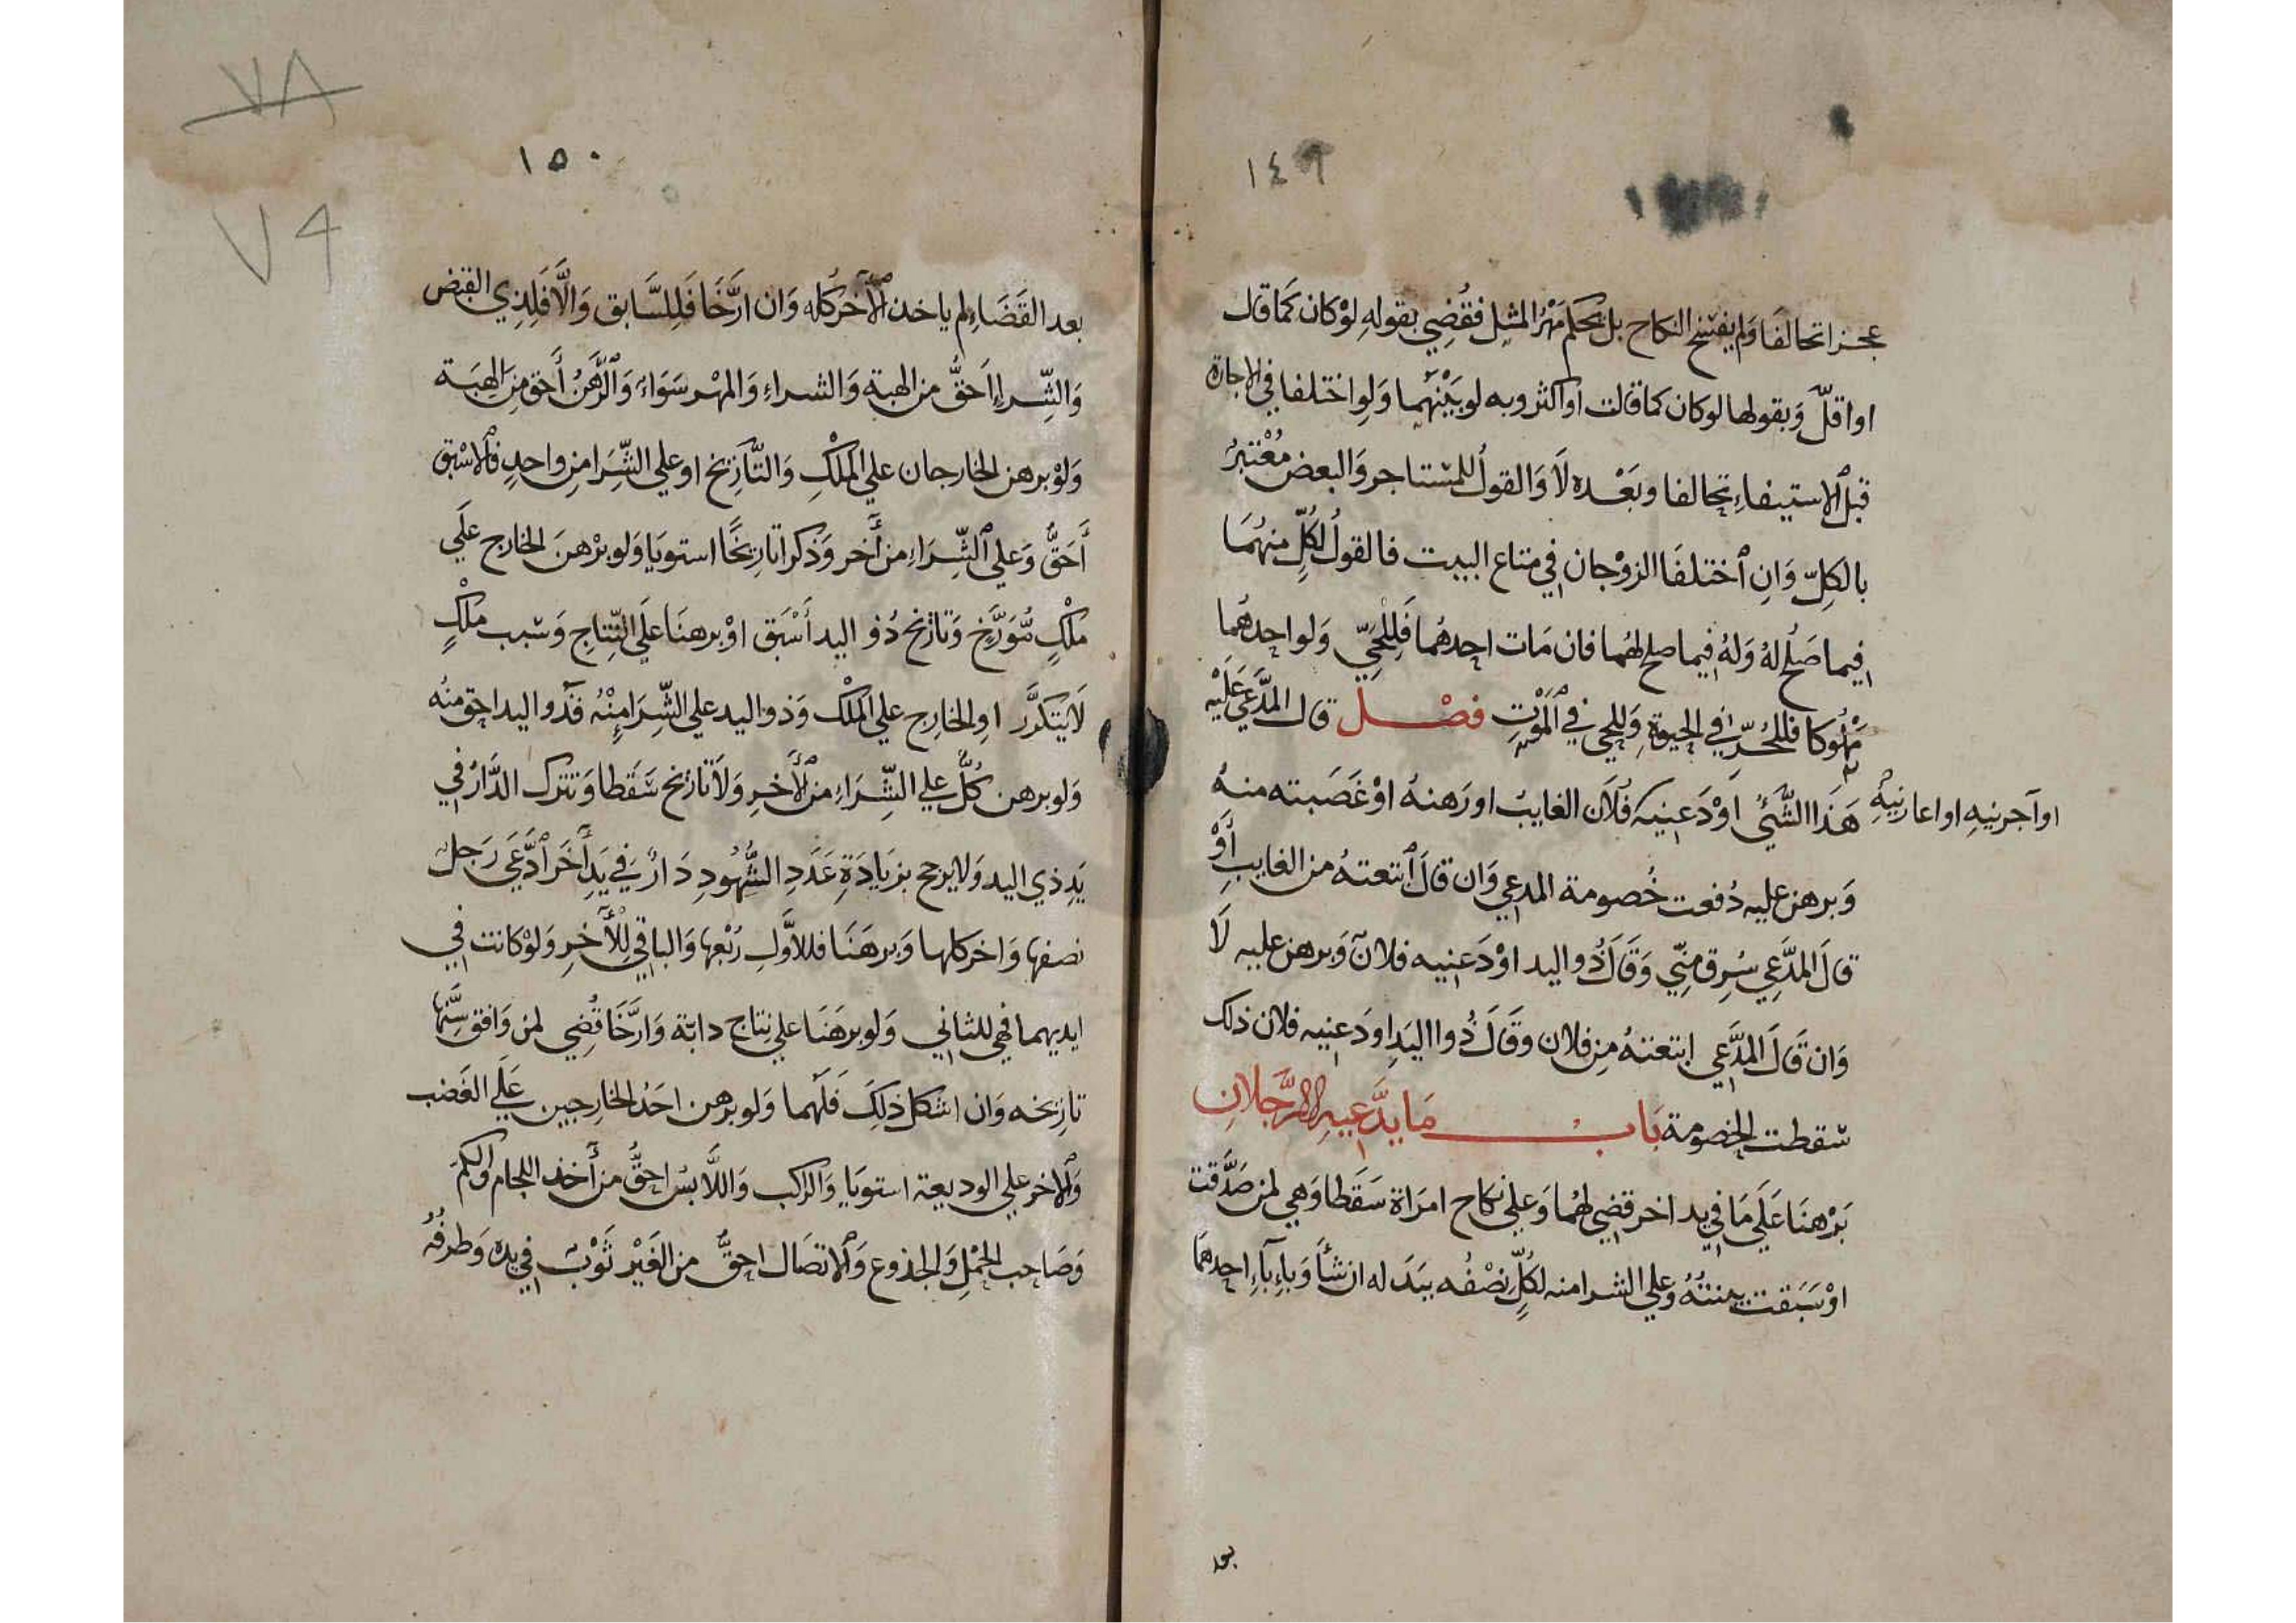 ١٤٩
عجزا تحالفا وَلم يفسَخ النكاح بل يحكم مَهْرُ المثِل فقُضِي بقولهِ لوْ كان كَما قال
او اقلّ وَبقولها لو كان كما قالت او اكثر وبه لو بَيْنَهُما وَلوِ اختلفا في الاجارة
قبل الاستيفاءِ تحالفا وبَعْده لَا وَالقولُ للمستاجر وَالبعض مُعْتبرُ
بالكِلّ وَانِ اختلفَا الزوْجان في متاع البيت فالقولُ لكُلِّ منهُمَا
فيما صَلُح لهُ وَلهُ فيما صلح لهُما فان مَات احِدهُما فَلِلحَيّ وَلو احِدهُما
مملُوكا فللحُرّ في الحيوٰةِ وَللحي في المَوْتِ فصْل قال المدَّعَي عَلَيْه
هَذا الشَّئُ اوْدَعنِيه فُلَان الغايبُ او رَهنهُ اوْ غَصَبته منهُ
او آجرنيهِ او اعارنيهِ
وَبرهن عليه دُفعت خُصومة المدعي وَان قالَ ابتعتهُ من الغايبِ أوْ
قالَ المدَّعِي سُرِق مِنّي وَقَالَ ذُو اليد اوْدَعنِيه فلانٌ وَبرهن عليه لَا
وَان قَالَ المدَّعي ابتعتهُ مِن فلان وقَالَ ذُوا اليَدِ اودَعنيه فلان ذلك
سقطت الخصومة بَاب مَا يدَّعيهِ الرَّجلانِ
بَرْهنَا عَلَي مَا في يد اخر قضِي لهُما وَعلي نكاح امرَاة سَقَطا وَهي لمن صَدَّقت
اوْ سَبَقت بينتهُ وَعلي الشرا منه لكُلِّ نصْفُه ببَدَله ان شأَ وَباءِبآءِ احدهمَا
بعد
٧٨
١٥٠
٧٩
بعد القَضَاءِ لم ياخذ الآخر كُله وَان ارَّخَا فَلِلسَّابق وَالَّا فَلِذِي القبْض
وَالشِّراءِ احَقُّ من الهبة وَالشراءِ وَالمهْر سَوَاءٌ وَالرَّهْنُ أحَق مِنَ الهِبَة
وَلوْ برهن الخارجان علي الملْكِ وَالتَّاريخ او علي الشِّرَا مِن واحدٍ فالاسْبق
أَحَقُّ وَعلي الشِّرَاءِ من أخر وَذكرا تاريخًا استويَا وَلو برْهنَ الخارج علَي
ملْكٍ مُّوَرَّخ وَتاريخ ذُو اليد أَسْبَق اوْ برهنَا علَي النِّتاجِ وَسبب ملْكٍ
لَا يَتكرَّر اوِ الخارِج علي الملْك وَذو اليد علي الشِّرَا مِنْهُ فذُو اليد احق منْه
وَلو برهن كُلُّ علي الشِّرَاءِ من الأخرِ وَلَا تاريخ سَقَطا وَتترك الدَّارُ في
يَدِ ذي اليد وَلا يرجح بزيَادَةِ عَدَدِ الشُّهُودِ دَارٌ في يَدِ أخَر ادَّعَي رَجل
نصفها وَاخر كلها وَبرهَنَا فللاوَّلِ رُبْعها وَالباقي لِلأخرِ وَلوْ كانت في
ايديهما فهي للثاني وَلو برهَنَا علي نِتاج دابّة وَارَّخَا قُضِي لمن وَافق سِنَّها
تاريخه وَان اشكل ذلِكَ فَلهُما وَلو برهن احَدُ الخارِجين عَلَي الغَصْب
وَالاخر علي الوديعة استويَا وَالراكب وَاللَّابسُ احقُّ من أخذ اللجام وَالكمّ
وَصَاحب الحِمْلِ وَالجذوع وَالاتصَال احقُّ من الغَيْر ثَوْبٌ في يده وَطرفُهُ